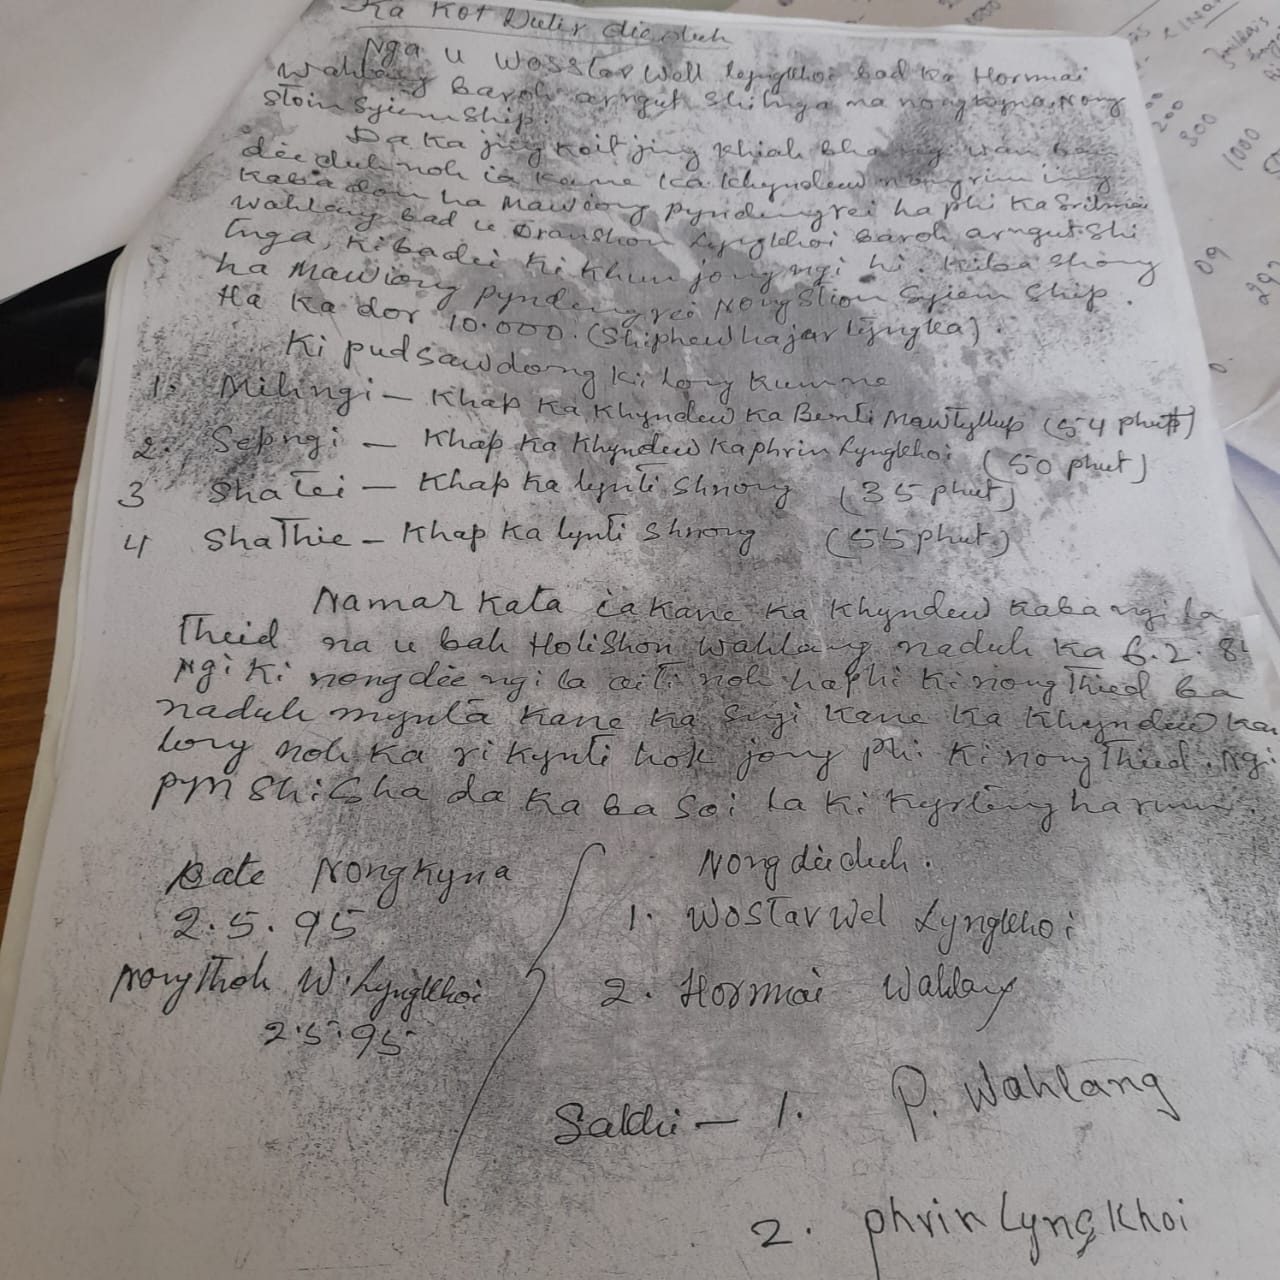 Ka Kot Dulir die duh
Nga u Wosstar Well Lyngkhoi bad Ka Hormai
Wahlang baroh arngut shi inga na nongkyna, Nong
Stoin Syiem Ship.
Da ka jing koit jing khiah bha ngi wan ban
die duh noh ia kane ka khyndew nongrim ing
kaba don ha Mawiong pyndengrei ha phi Ka Srilmai
Wahlang bad u Dranshon Lyngkhoi baroh arngut shi
inga, ki ba dei ki khun jong ngi hi. kiba shong
ha Mawiong pyndengrei Nong Stion Syiem Ship.
Ha ka dor 10.000. (Shiphew hajar lyngka).
Ki pud sawdong ki long kumne
1. Mihngi – Khap ka khyndew ka Benti Mawtyllup (54 phut)
2. Sepngi – Khap ka khyndew ka phrin Lyngkhoi (50 phut)
3 Sha Tei – Khap ka lynti Shnong (35 phut)
4 Sha Thie – Khap ka lynti Shnong (55 phut)
Namar kata ia kane ka khyndew kaba ngi la
Theid na u bah Holishon Wahlang naduh ka 6.2.8
Ngi ki nongdie ngi la aiti noh ha phi ki nong Thied ba
naduh mynta kane ka sngi kane ka khyndew kan
long noh ka ri kynti hok jong phi ki nong Thied. Ngi
pyn shisha da ka ba soi la ki kyrteng harum
Date Nongkyna
2.5.95
Nong Thoh W. Lyngkhoi
2.5.95
Nong die duh.
1. Wostarwel Lyngkhoi
2. Hormai Wahlang
Sakhi – 1. P. Wahlang
2. phrin Lyngkhoi
1000
200
800
1000
09